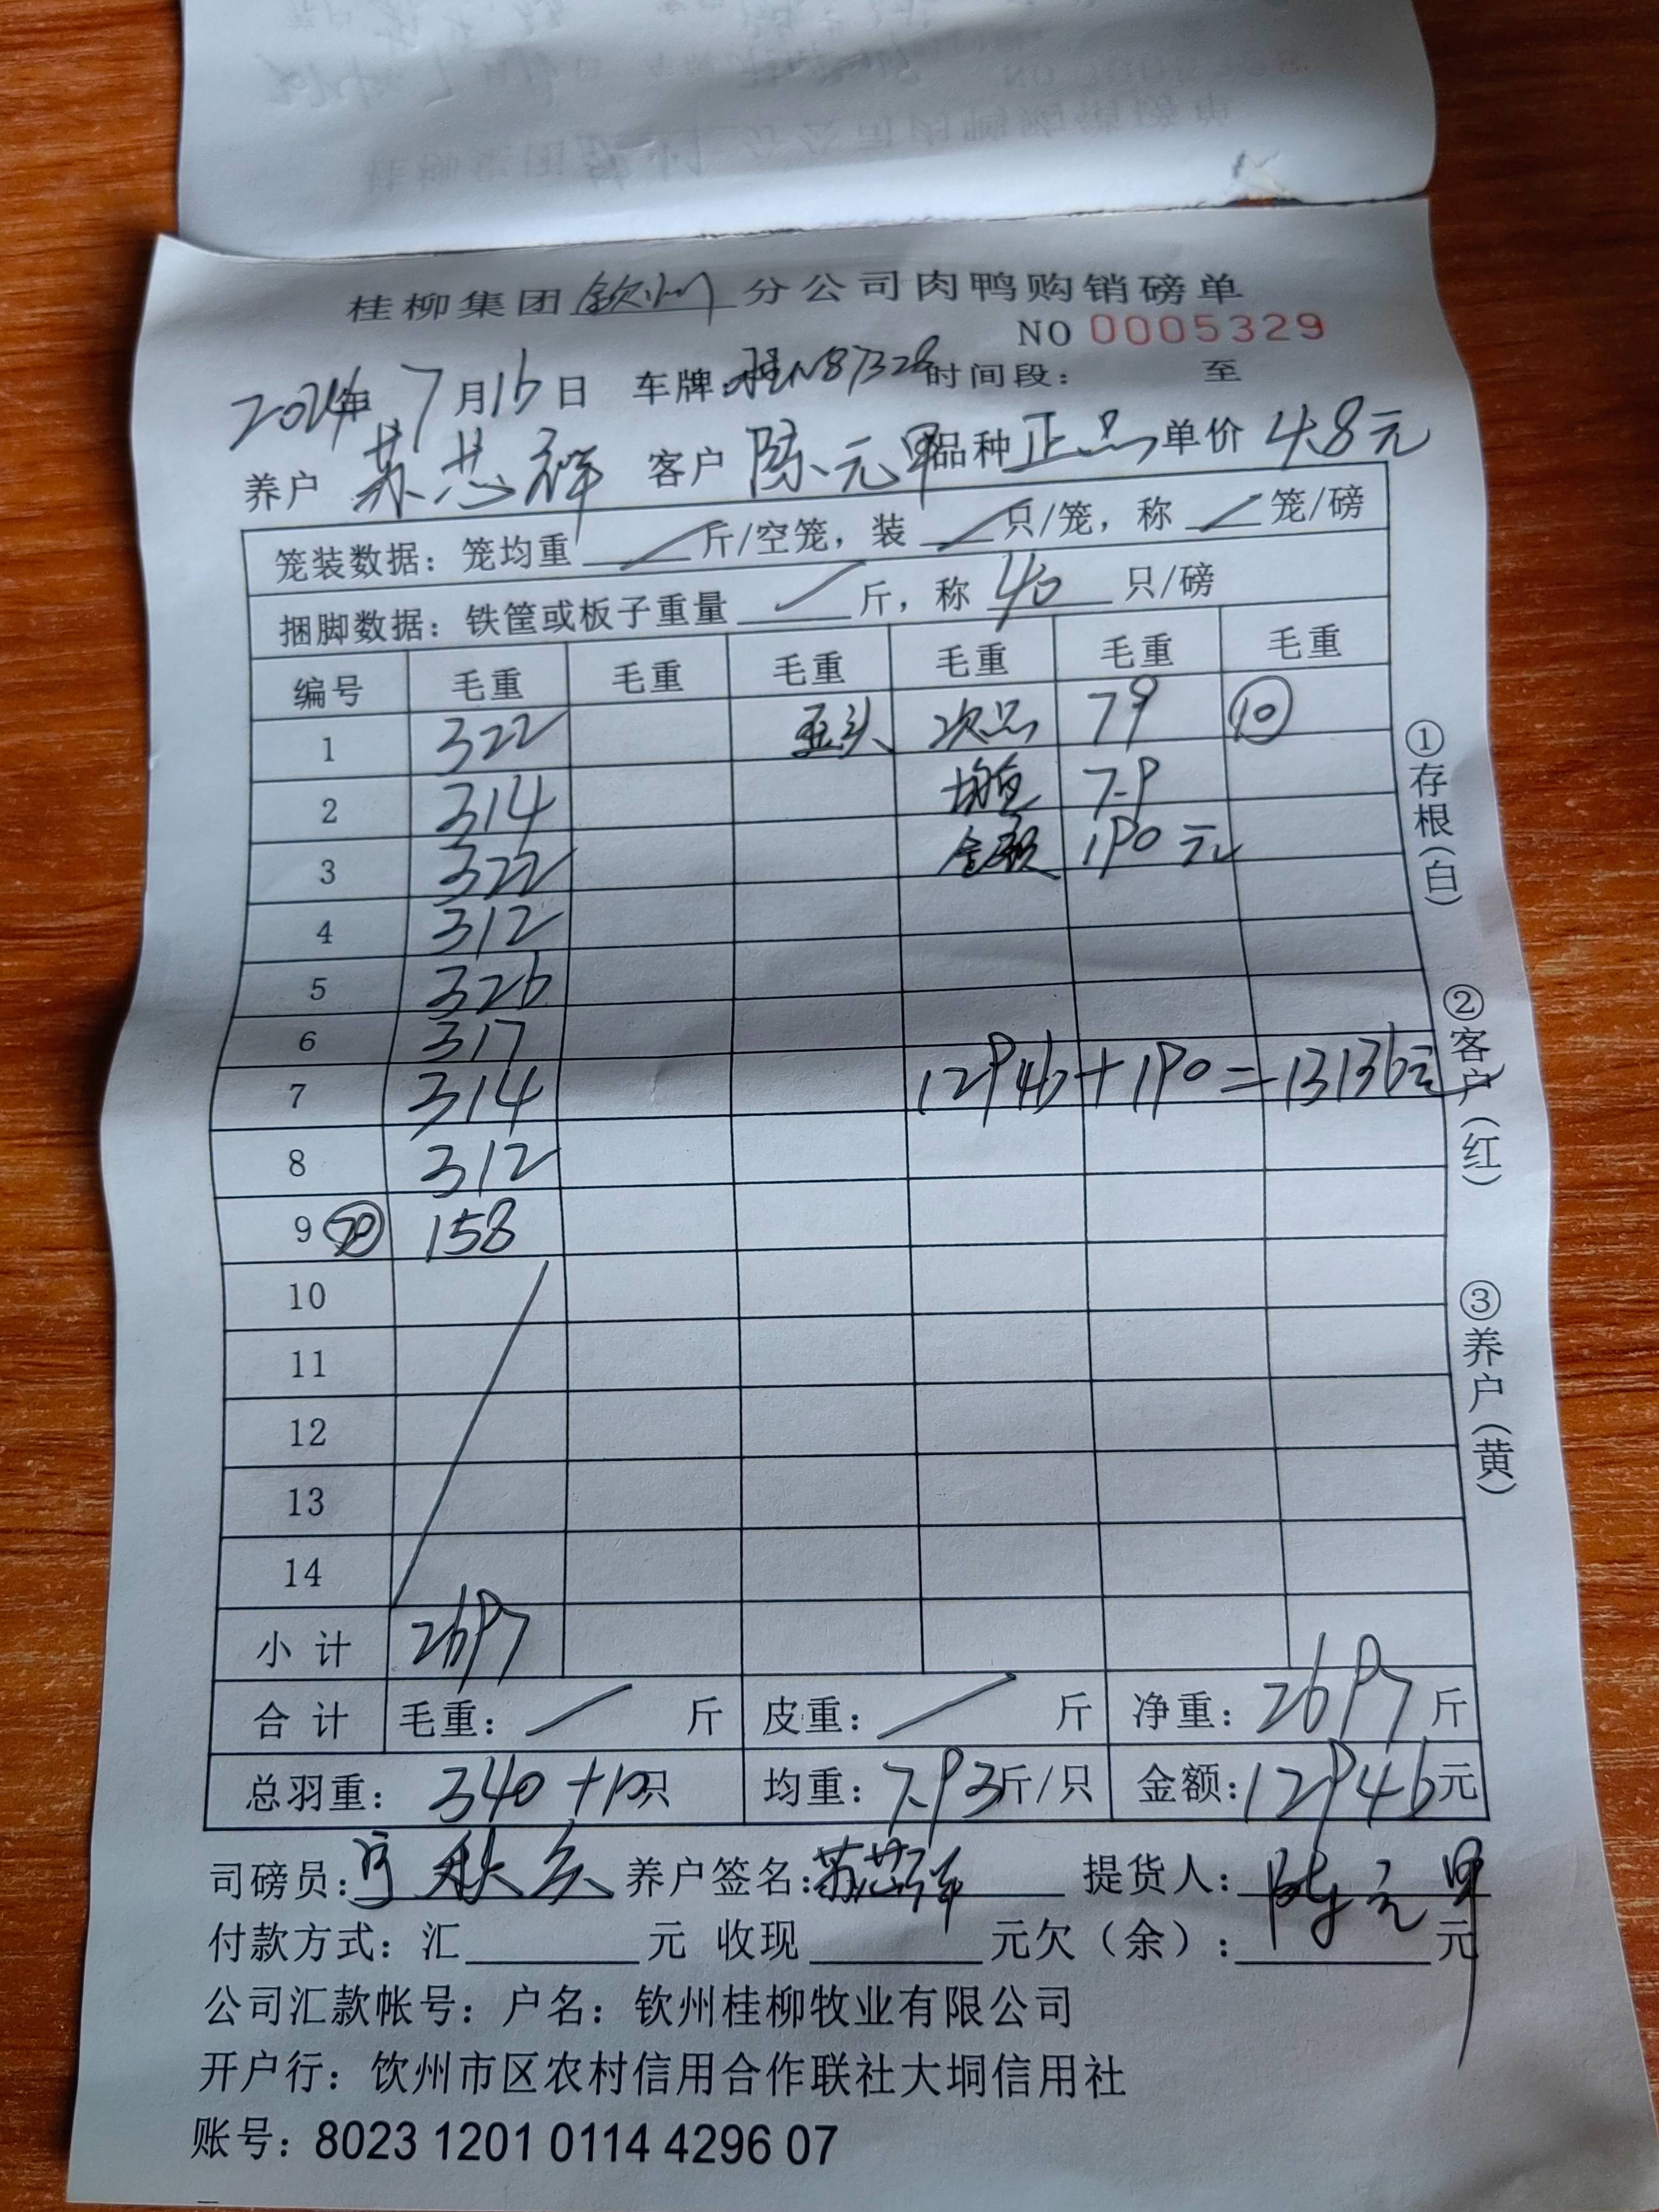 桂柳集团钦州分公司肉鸭购销磅单
NO 0005329
2024年 7月16日 车牌:桂N87328 时间段: 至
养户 苏芯祥 客户 陈元甲 品种 正品 单价 4.8元
笼装数据: 笼均重 斤/空笼, 装 只/笼, 称 笼/磅
捆脚数据: 铁筐或板子重量 斤, 称 40 只/磅
编号 毛重 毛重 毛重 毛重 毛重 毛重
1 322 次品 79 ⑩
2 314 均重 7.9
3 322 金额 190元
4 312
5 326
6 317
7 314 12946+190=13136元
8 312
9 ⑳ 158
10
11
12
13
14
小计 2697
合计 毛重: 斤 皮重: 斤 净重: 2697 斤
总羽重: 340+10只 均重: 7.93斤/只 金额: 12946元
司磅员: 养户签名: 苏芯祥 提货人: 陈元甲
付款方式: 汇 元 收现 元欠(余): 元
公司汇款帐号: 户名: 钦州桂柳牧业有限公司
开户行: 饮州市区农村信用合作联社大垌信用社
账号: 8023 1201 0114 4296 07
①存根(白)
②客户(红)
③养户(黄)